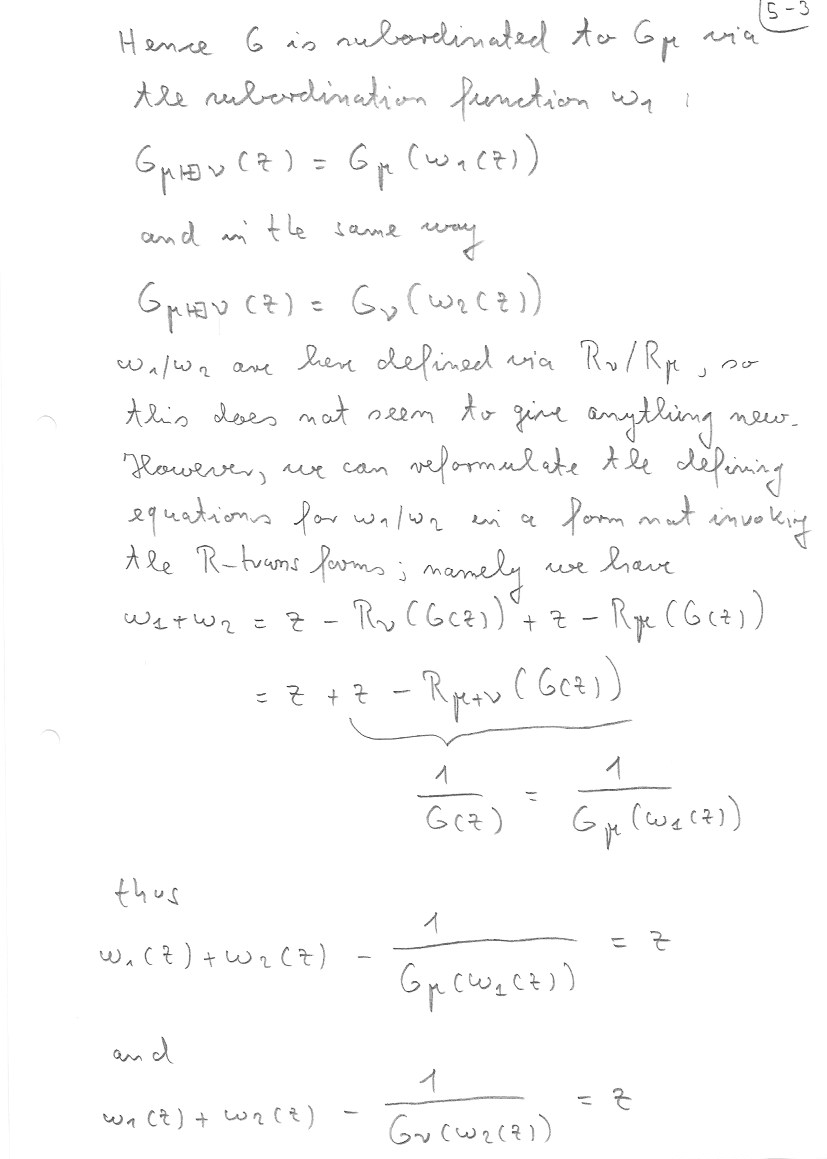 5-3
Hence G is subordinated to Gμ via
the subordination function ω₁ :
G_{μ⊞ν}(z) = G_μ(ω₁(z))
and in the same way
G_{μ⊞ν}(z) = G_ν(ω₂(z))
ω₁/ω₂ are here defined via R_ν/R_μ, so
this does not seem to give anything new.
However, we can reformulate the defining
equations for ω₁/ω₂ in a form not invoking
the R-transforms; namely we have
ω₁+ω₂ = z - R_ν(G(z)) + z - R_μ(G(z))
= z + z - R_{μ+ν}(G(z))
1/G(z) = 1/G_μ(ω₁(z))
thus
ω₁(z) + ω₂(z) - 1/G_μ(ω₁(z)) = z
and
ω₁(z) + ω₂(z) - 1/G_ν(ω₂(z)) = z